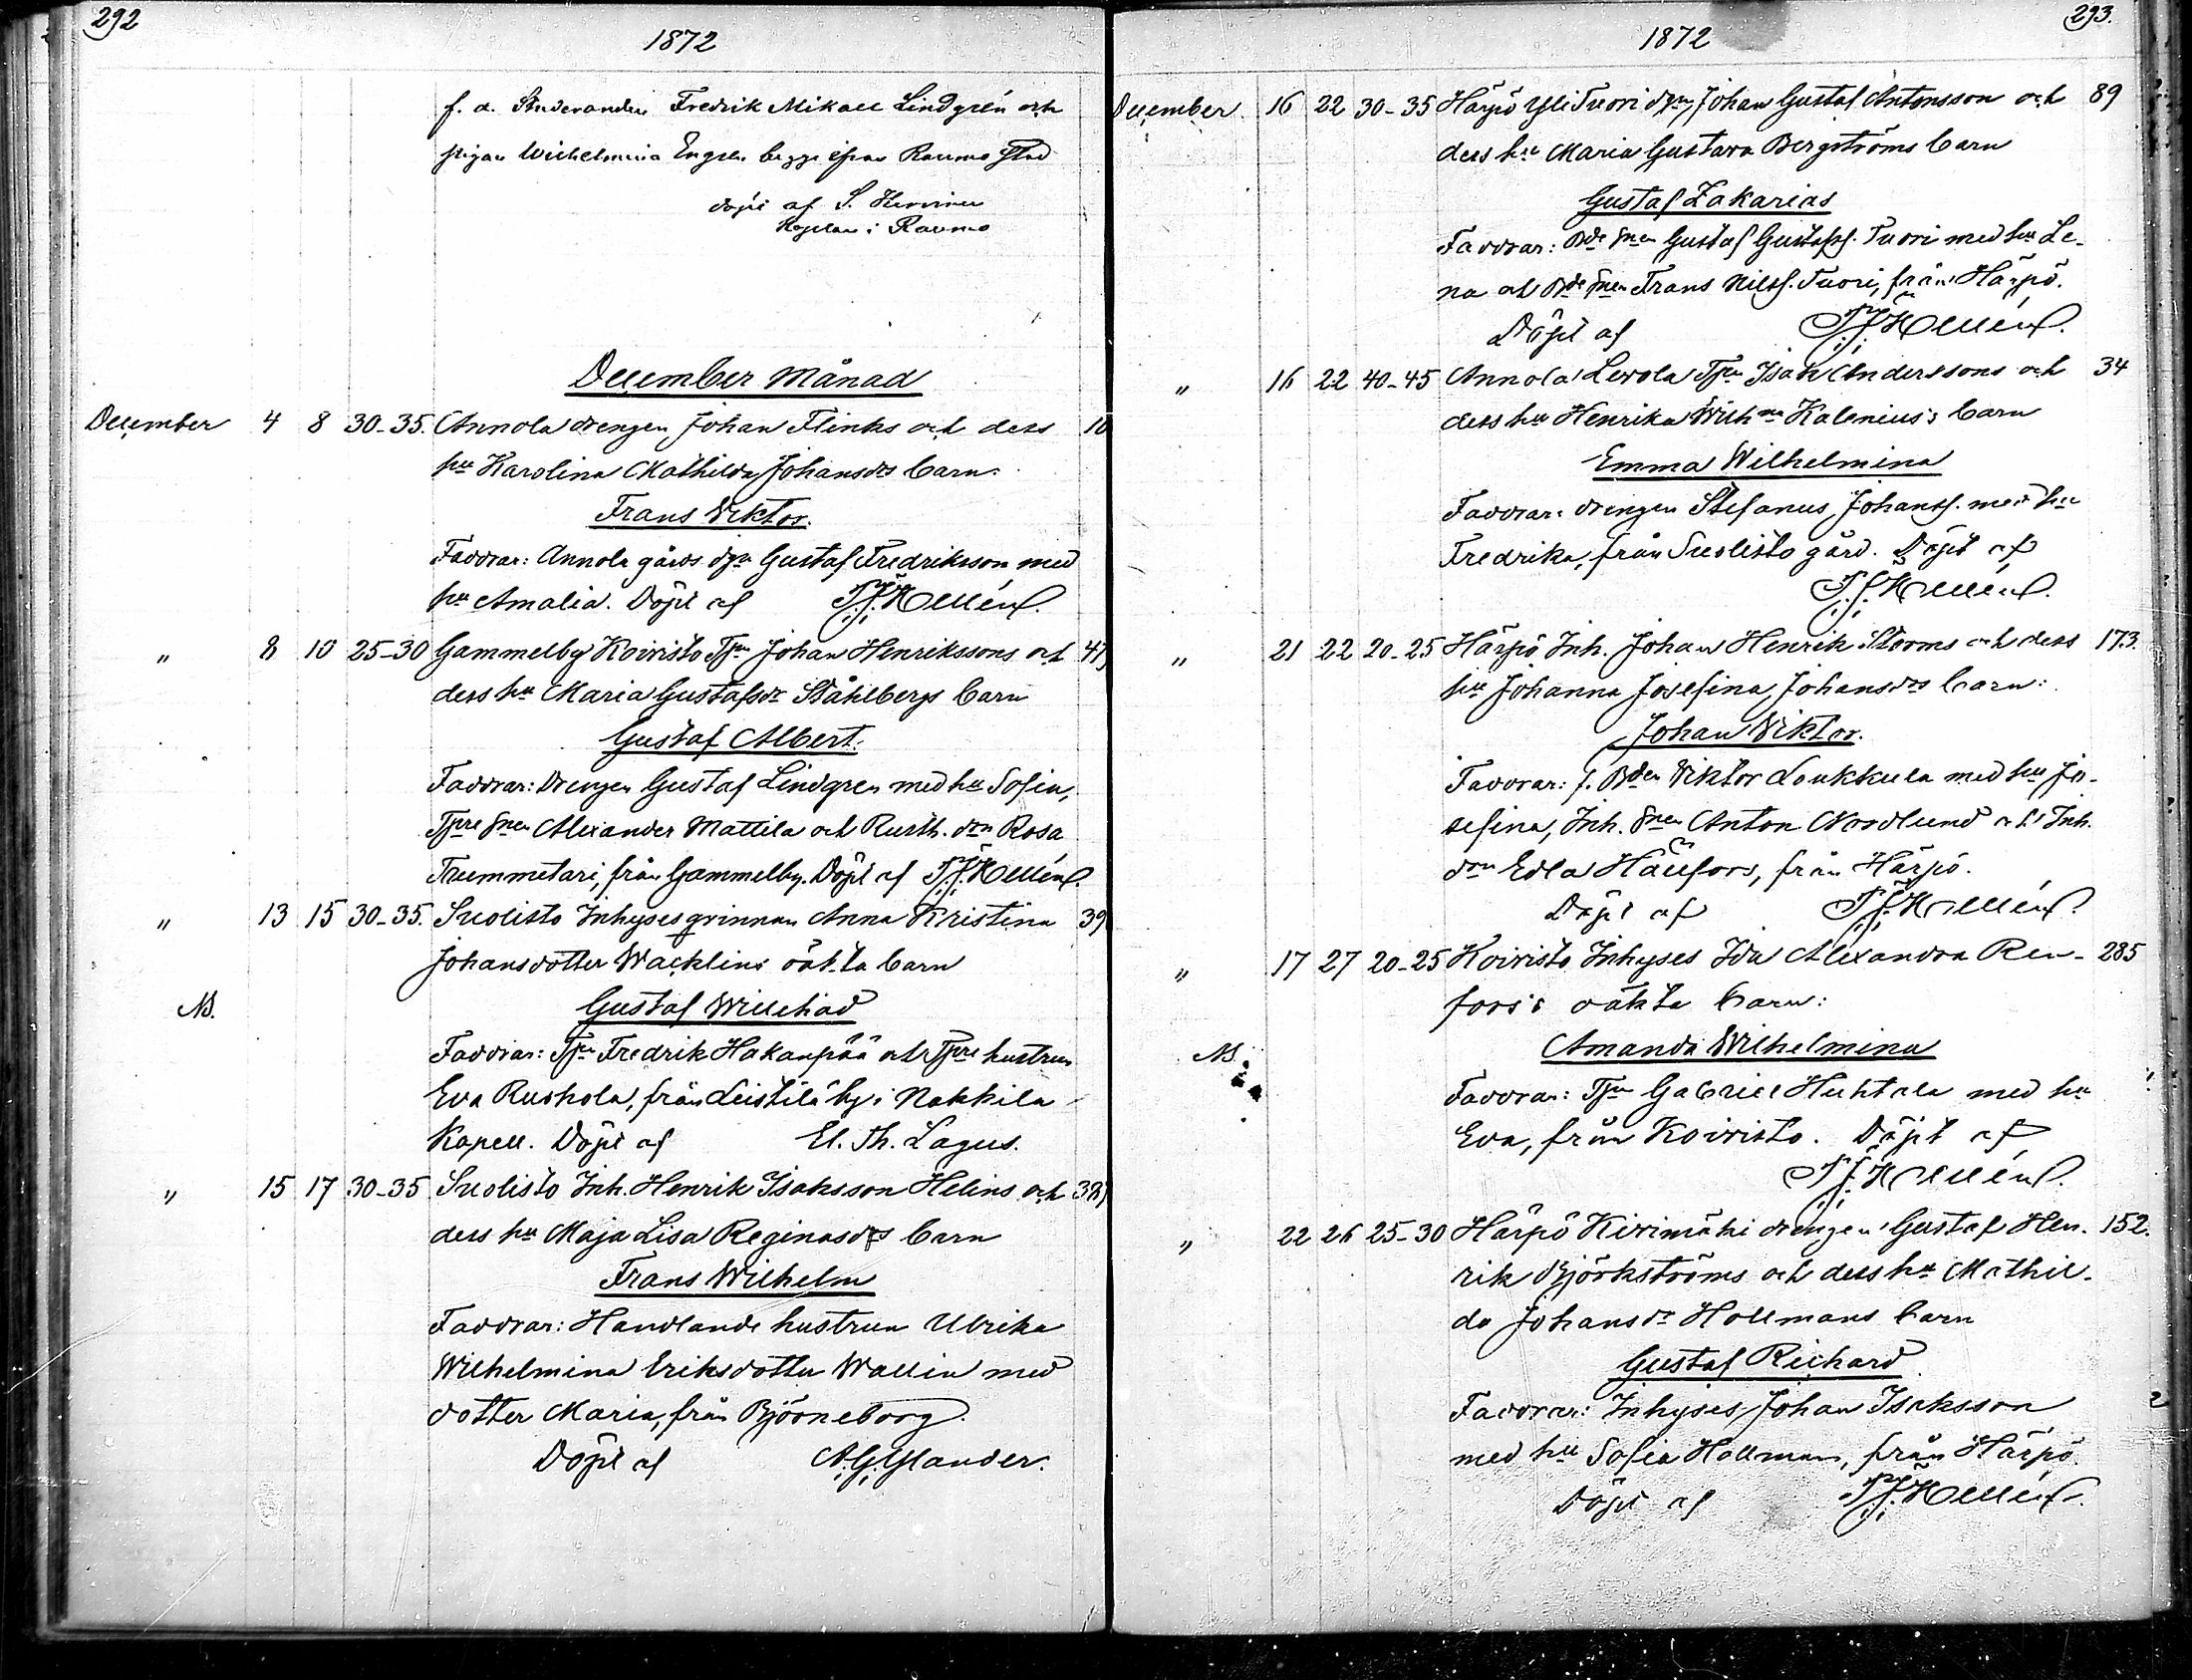 292
1872
f. d. Studeranden Fredrik Mikael Lindgrén och
pigan Wilhelmina Engren begge ifrån Raumo stad
döpt af S. Hervinen
Kaplan i Raumo
December Månad
December 4 8 30-35. Annola drengen Johan Flinks och dess 10
hu Karolina Mathilda Johansdrs barn:
Frans Viktor.
Faddrar: Annola gårds dgn Gustaf Fredriksson med
hu Amalia. Döpt af F.J. Hellén.
" 8 10 25-30 Gammelby Koivisto Tpn Johan Henrikssons och 47
dess hu Maria Gustafsdr Ståhlbergs barn
Gustaf Albert.
Faddrar: Drengen Gustaf Lindgren med hu Sofia,
Tpre snen Alexander Mattila och Rusth. drn Rosa
Trummetari, från Gammelby. Döpt af F.J. Hellén.
" 13 15 30-35. Suolisto Inhysesqvinnan Anna Kristina 39
Johansdotter Wacklins oäkta barn
NB. Gustaf Willehad
Faddrar: Tpn Fredrik Hakanpää och Tpre hustrun
Eva Ruskola, från Leistilä by i Nakkila
Kapell. Döpt af El. Th. Lagus.
" 15 17 30-35 Suolisto Inh. Henrik Isaksson Helins och 38
dess hu Maja Lisa Reginasdrs barn
Frans Wilhelm
Faddrar: Handlande hustrun Ulrika
Wilhelmina Eriksdotter Wallin med
dotter Maria, från Björneborg.
Döpt af A.G. Ylander.
293.
1872
December 16 22 30-35 Härpö Yli Tuori dgn Johan Gustaf Antonsson och 89
dess hu Maria Gustava Bergströms barn
Gustaf Zakarias
Faddrar: Bde snen Gustaf Gustafss. Tuori med hu Le-
na och Bde snen Frans Nilss. Tuori, från Härpö.
Döpt af F.J. Hellén.
" 16 22 40-45 Annola Levola Tpn Isak Anderssons och 34
dess hu Henrika Wilhna Kalenius's barn
Emma Wilhelmina
Faddrar: drengen Stefanus Johanss. med hu
Fredrika, från Suolisto gård. Döpt af
F.J. Hellén.
" 21 22 20-25 Härpö Inh. Johan Henrik Storms och dess 173.
hu Johanna Josefina Johansdrs barn:
Johan Viktor.
Faddrar: f. Bden Viktor Loukkula med hu Jo-
sefina, Inh. snen Anton Nordlund och Inh.
drn Edla Hällfors, från Härpö.
Döpt af F.J. Hellén.
" 17 27 20-25 Koivisto Inhyses Ida Alexandra Ren- 285
fors's oäkta barn:
NB. Amanda Wilhelmina
Faddrar: Tpn Gabriel Huhtala med hu
Eva, från Koivisto. Döpt af
F.J. Hellén.
" 22 26 25-30 Härpö Kivimäki drengen Gustaf Hen- 152.
rik Björkströms och dess hu Mathil-
da Johansdr Hollmans barn
Gustaf Richard
Faddrar: Inhyses Johan Isaksson
med hu Sofia Hollman, från Härpö.
Döpt af F.J. Hellén.